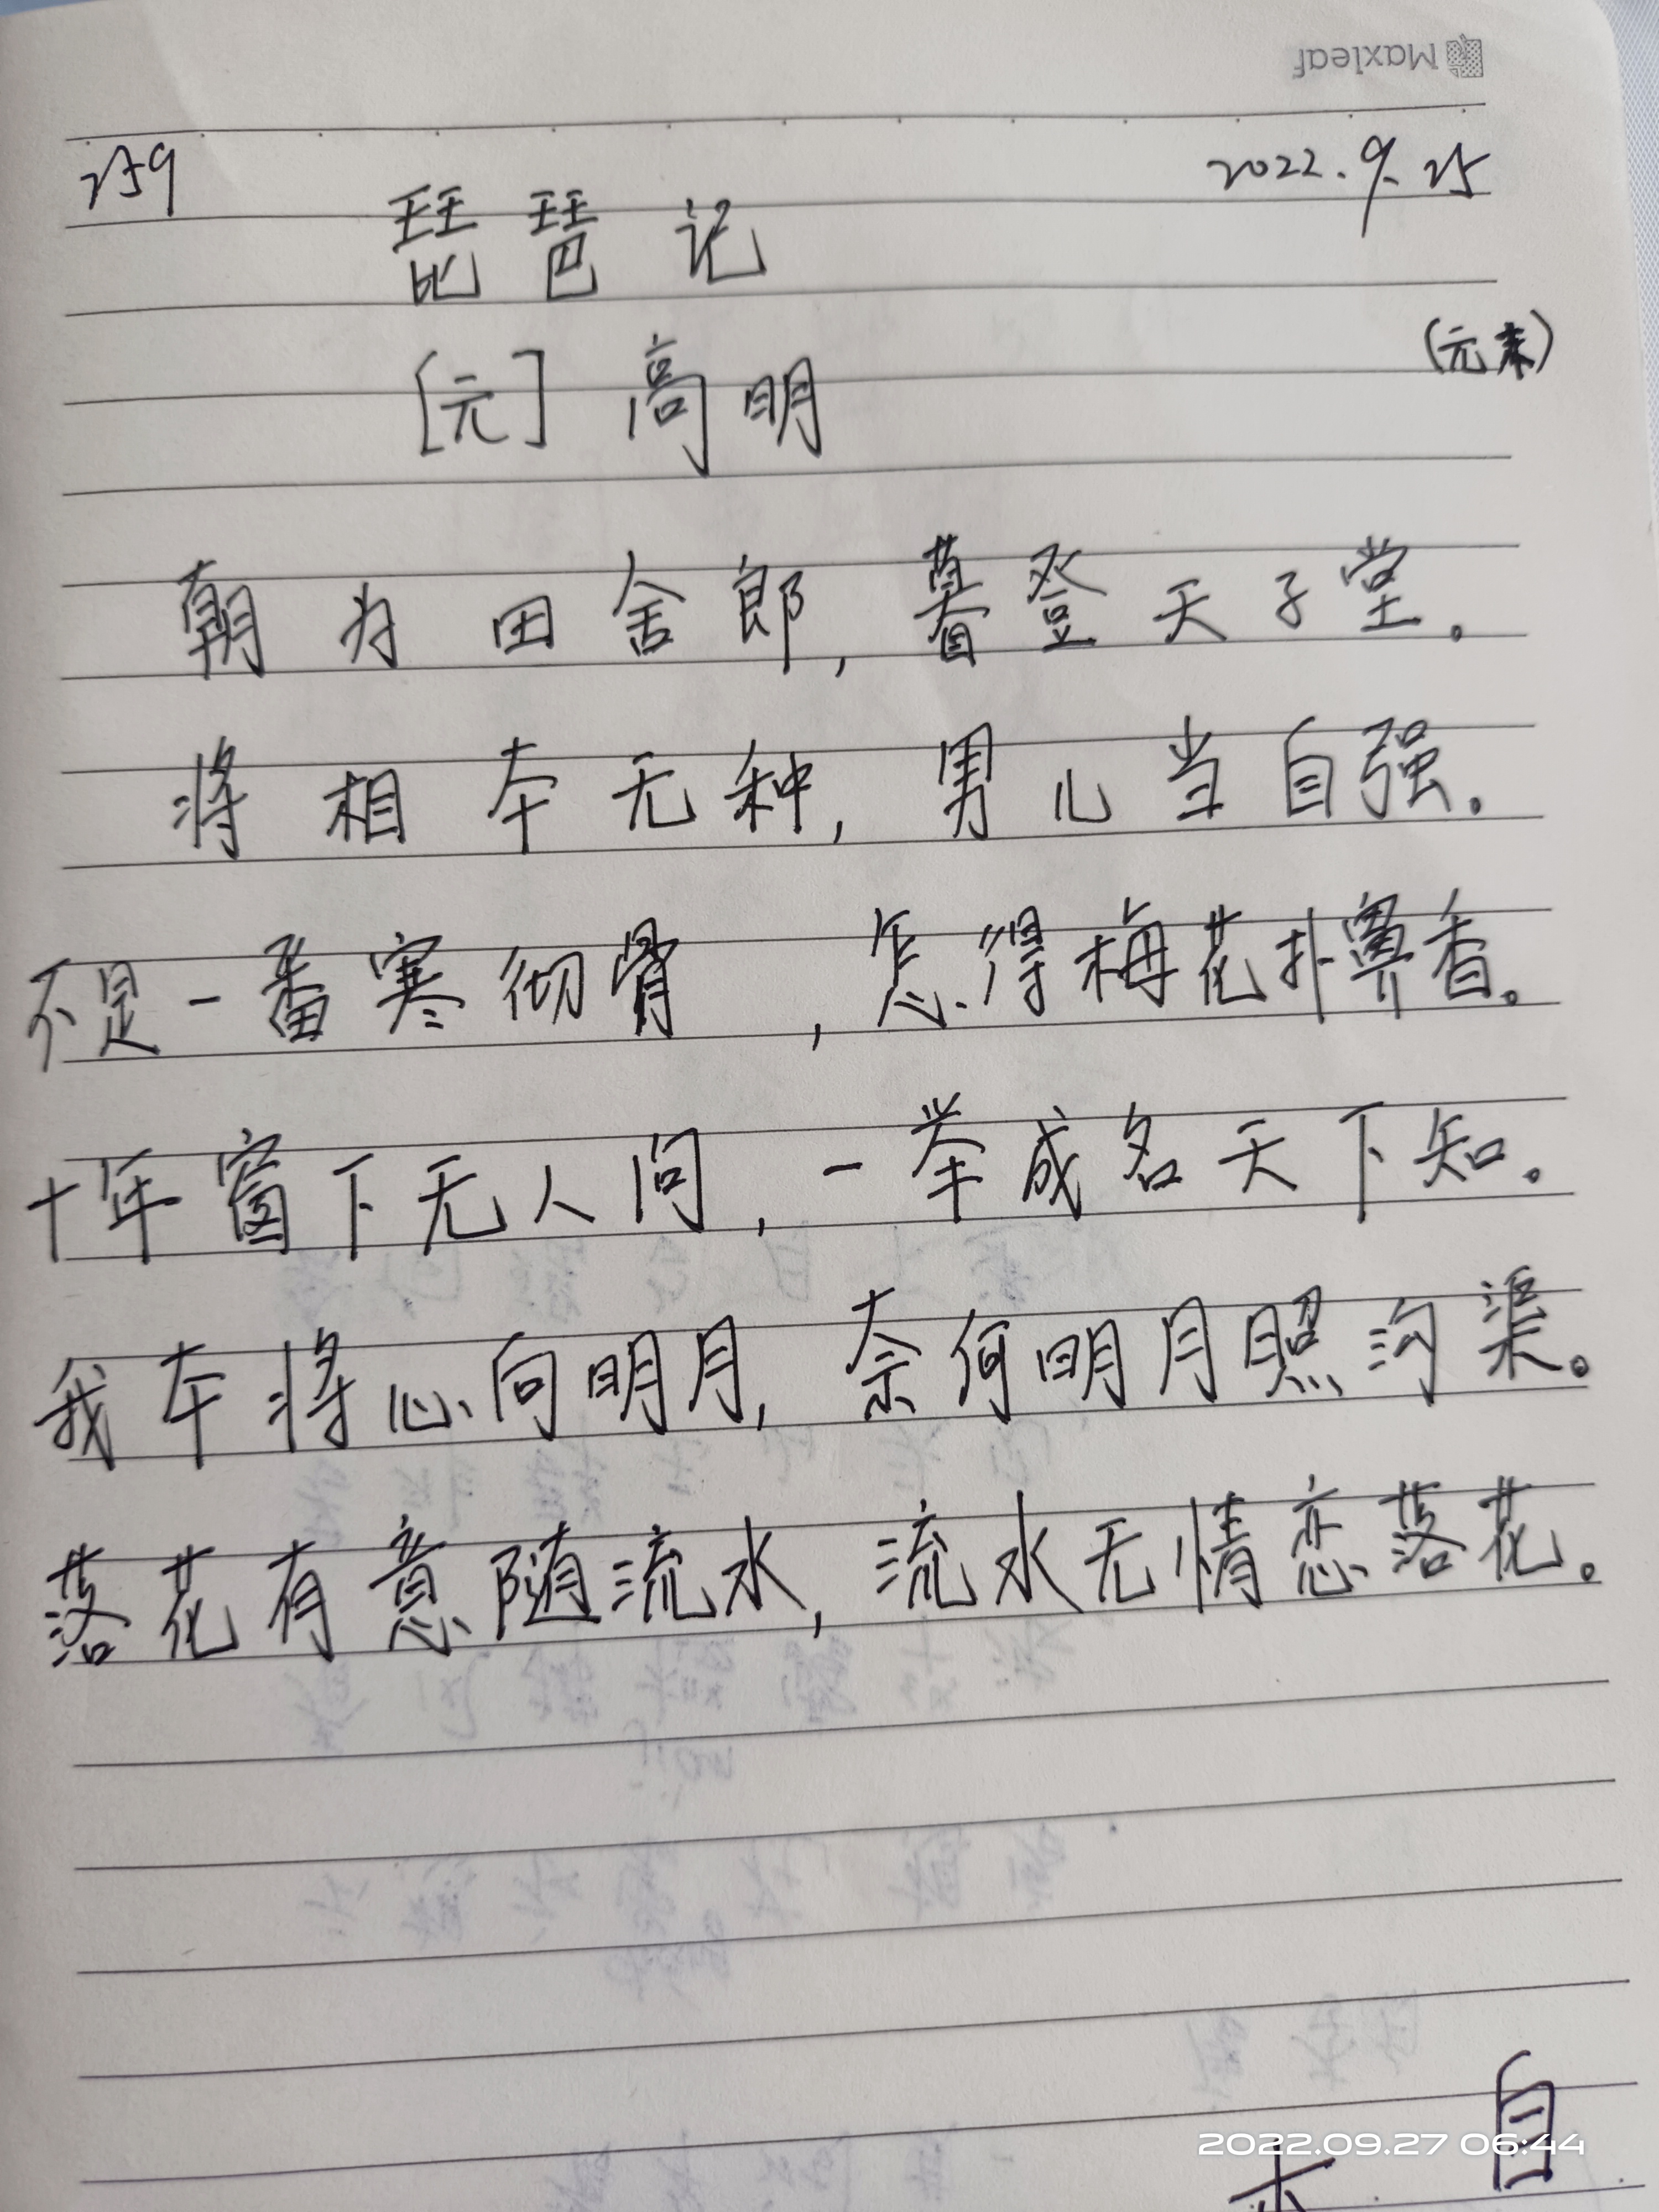 Maxleaf
259 2022.9.25
琵琶记
[元] 高明 (元末)
朝为田舍郎，暮登天子堂。
将相本无种，男儿当自强。
不是一番寒彻骨，怎得梅花扑鼻香。
十年窗下无人问，一举成名天下知。
我本将心向明月，奈何明月照沟渠。
落花有意随流水，流水无情恋落花。
自
2022.09.27 06:44